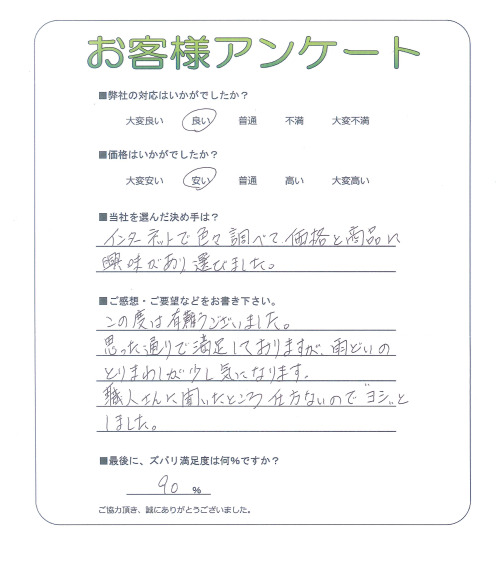 お客様アンケート
■弊社の対応はいかがでしたか？
大変良い 良い 普通 不満 大変不満
■価格はいかがでしたか？
大変安い 安い 普通 高い 大変高い
■当社を選んだ決め手は？
インターネットで色々調べて価格と商品に
興味があり選びました。
■ご感想・ご要望などをお書き下さい。
この度は有難うございました。
思った通りで満足しておりますが、雨どいの
とりまわしが少し気になります。
職人さんに聞いたところ仕方ないので"ヨシ"と
しました。
■最後に、ズバリ満足度は何%ですか？
90 %
ご協力頂き、誠にありがとうございました。